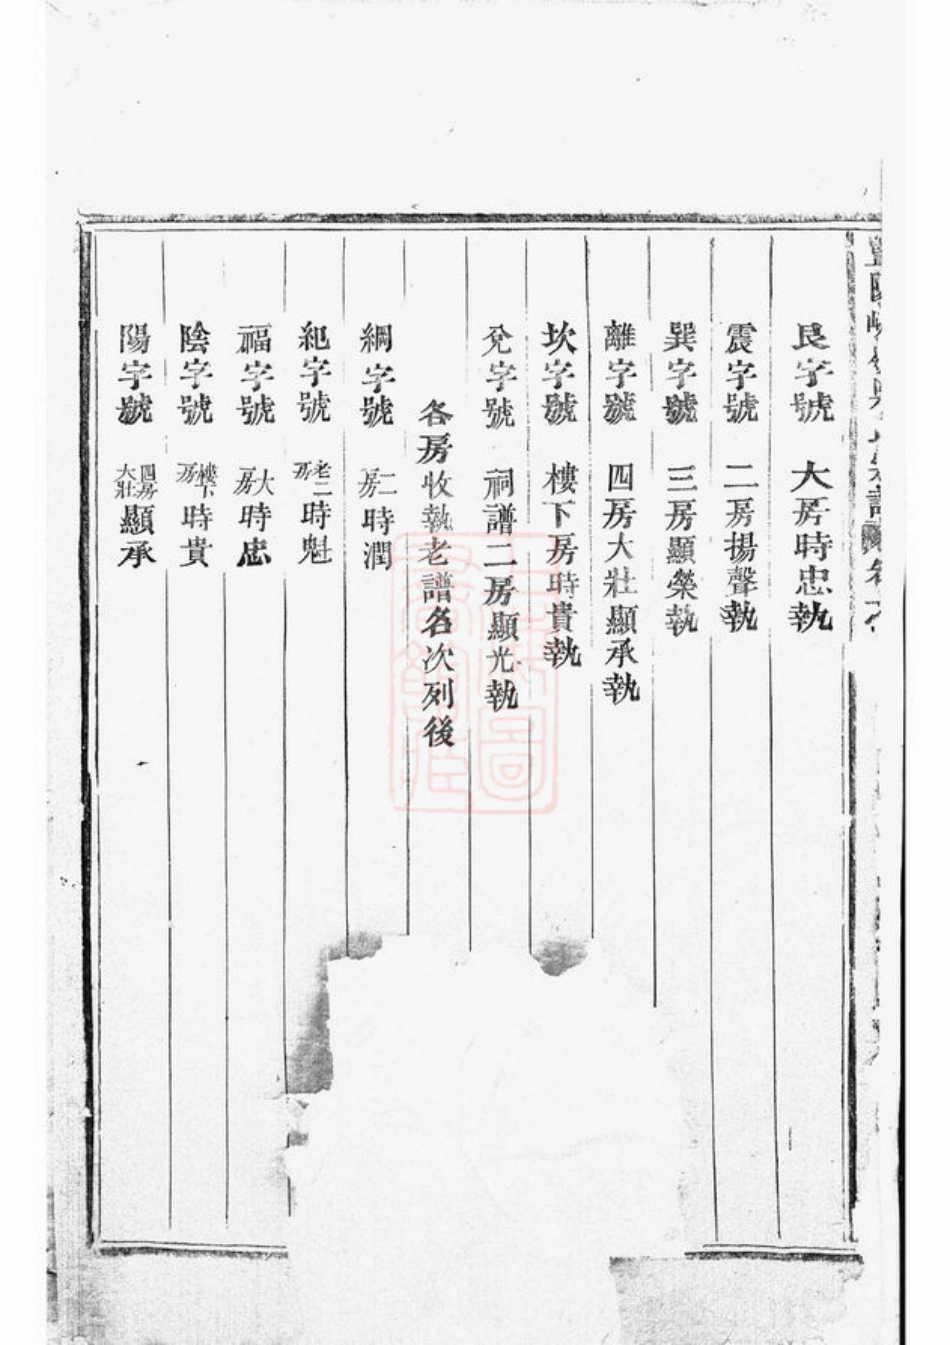 艮字號 大房時忠執
震字號 二房揚聲執
巽字號 三房顯榮執
離字號 四房大壯顯承執
坎字號 樓下房時貴執
兌字號 祠譜二房顯光執
各房收執老譜名次列後
綱字號 二房時潤
紀字號 老二房時魁
福字號 大房時忠
陰字號 樓下房時貴
陽字號 四房大壯顯承